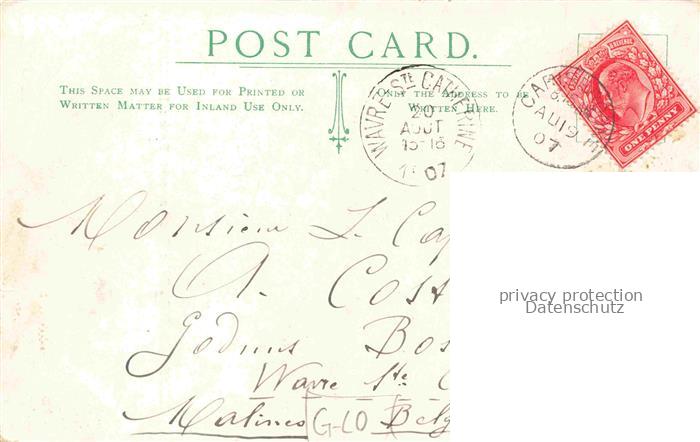 POST CARD.
THIS SPACE MAY BE USED FOR PRINTED OR
WRITTEN MATTER FOR INLAND USE ONLY.
ONLY THE ADDRESS TO BE
WRITTEN HERE.
WAVRE-STE CATHERINE
20
AOUT
15-16
07
AU 19
07
ONE PENNY
Monsieur L. Cap
A. Cost
Goduns Bos
Wavre Ste C
Malines G-LO Belg
privacy protection
Datenschutz